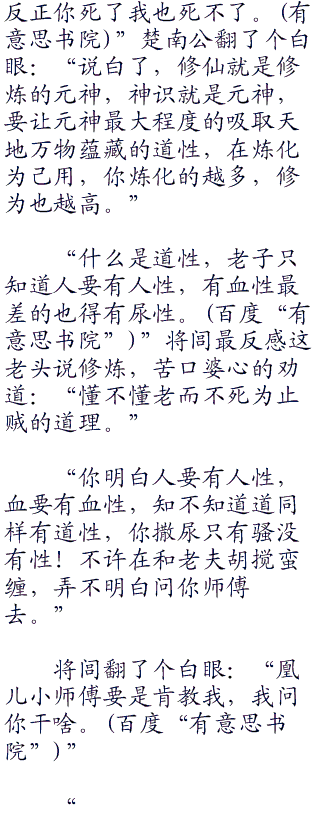 反正你死了我也死不了。(有
意思书院)”楚南公翻了个白
眼：“说白了，修仙就是修
炼的元神，神识就是元神，
要让元神最大程度的吸取天
地万物蕴藏的道性，在炼化
为己用，你炼化的越多，修
为也越高。”
“什么是道性，老子只
知道人要有人性，有血性最
差的也得有尿性。(百度“有
意思书院”)”将闾最反感这
老头说修炼，苦口婆心的劝
道：“懂不懂老而不死为止
贼的道理。”
“你明白人要有人性，
血要有血性，知不知道道同
样有道性，你撒尿只有骚没
有性！不许在和老夫胡搅蛮
缠，弄不明白问你师傅
去。”
将闾翻了个白眼：“凰
儿小师傅要是肯教我，我问
你干啥。(百度“有意思书
院”)”
“